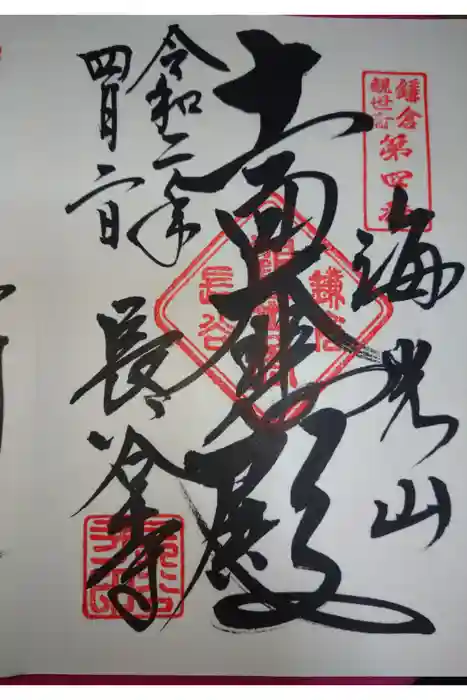 鎌倉
観世音
第四番
海光山
十一面大悲殿
令和二年
四月二日
長谷寺
鎌倉
長谷